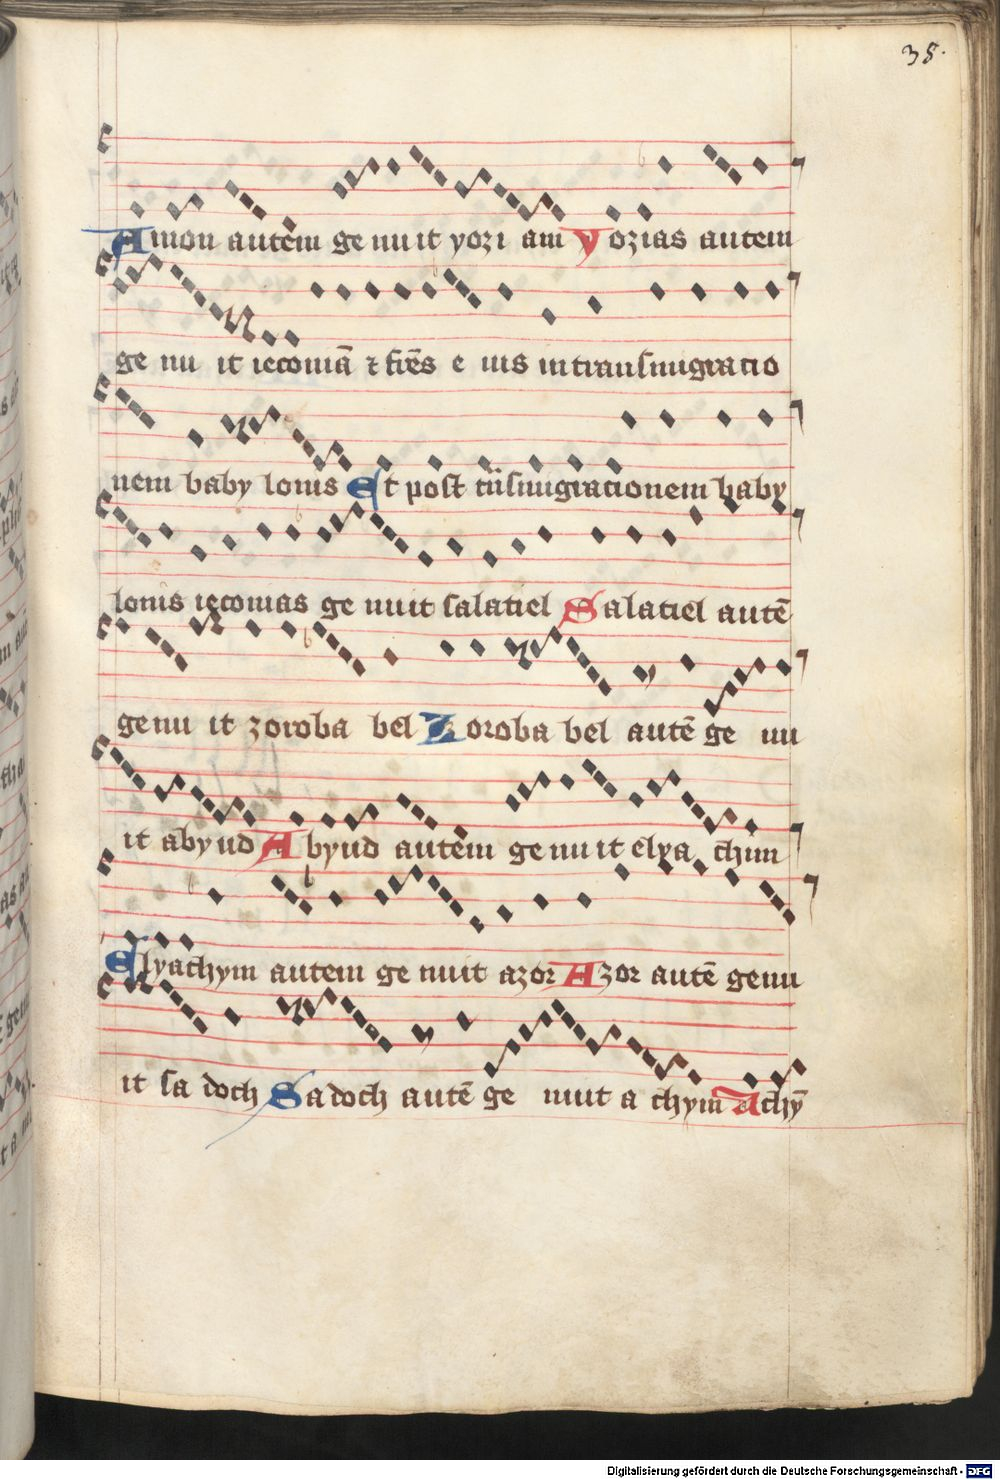 38.
Amon autem ge nu it yozi am Yozias autem
ge nu it ieconiā ⁊ fr̄es e ius in transmigracio
nem baby lonis Et post tn̄smigracionem baby
lonis ieconias ge nuit salatiel Salatiel autē
ge nu it zoroba bel Zoroba bel autē ge nu
it abyud Abyud autem ge nu it elya chim
Elyachym autem ge nuit azor Azor autē genu
it sa doch Sadoch autē ge nuit a chym Achȳ
Digitalisierung gefördert durch die Deutsche Forschungsgemeinschaft - DFG